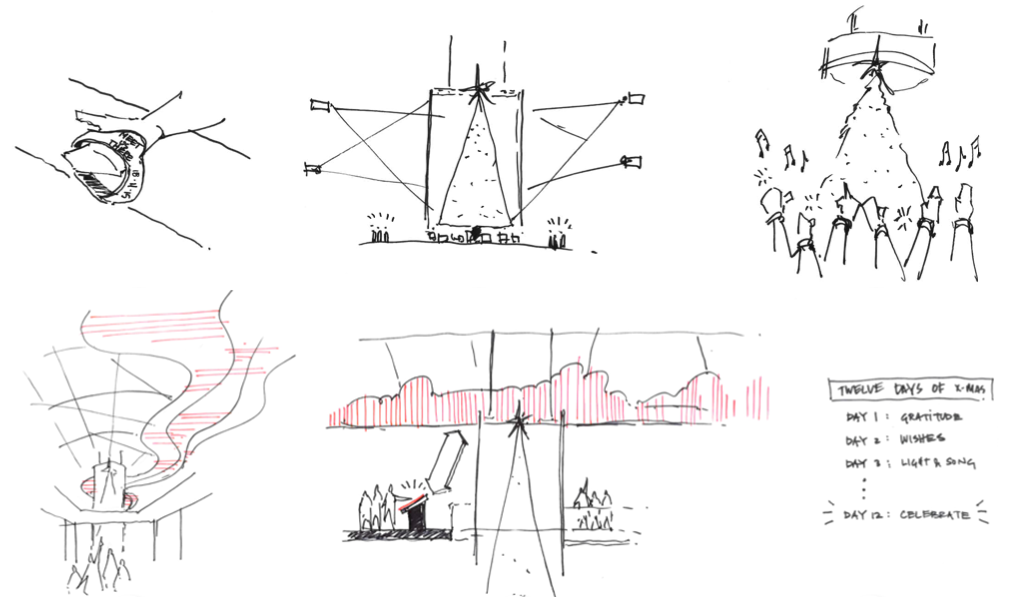 MEET
TWELVE DAYS OF X-MAS
DAY 1 : GRATITUDE
DAY 2 : WISHES
DAY 3 : LIGHT & SONG
DAY 12 : CELEBRATE